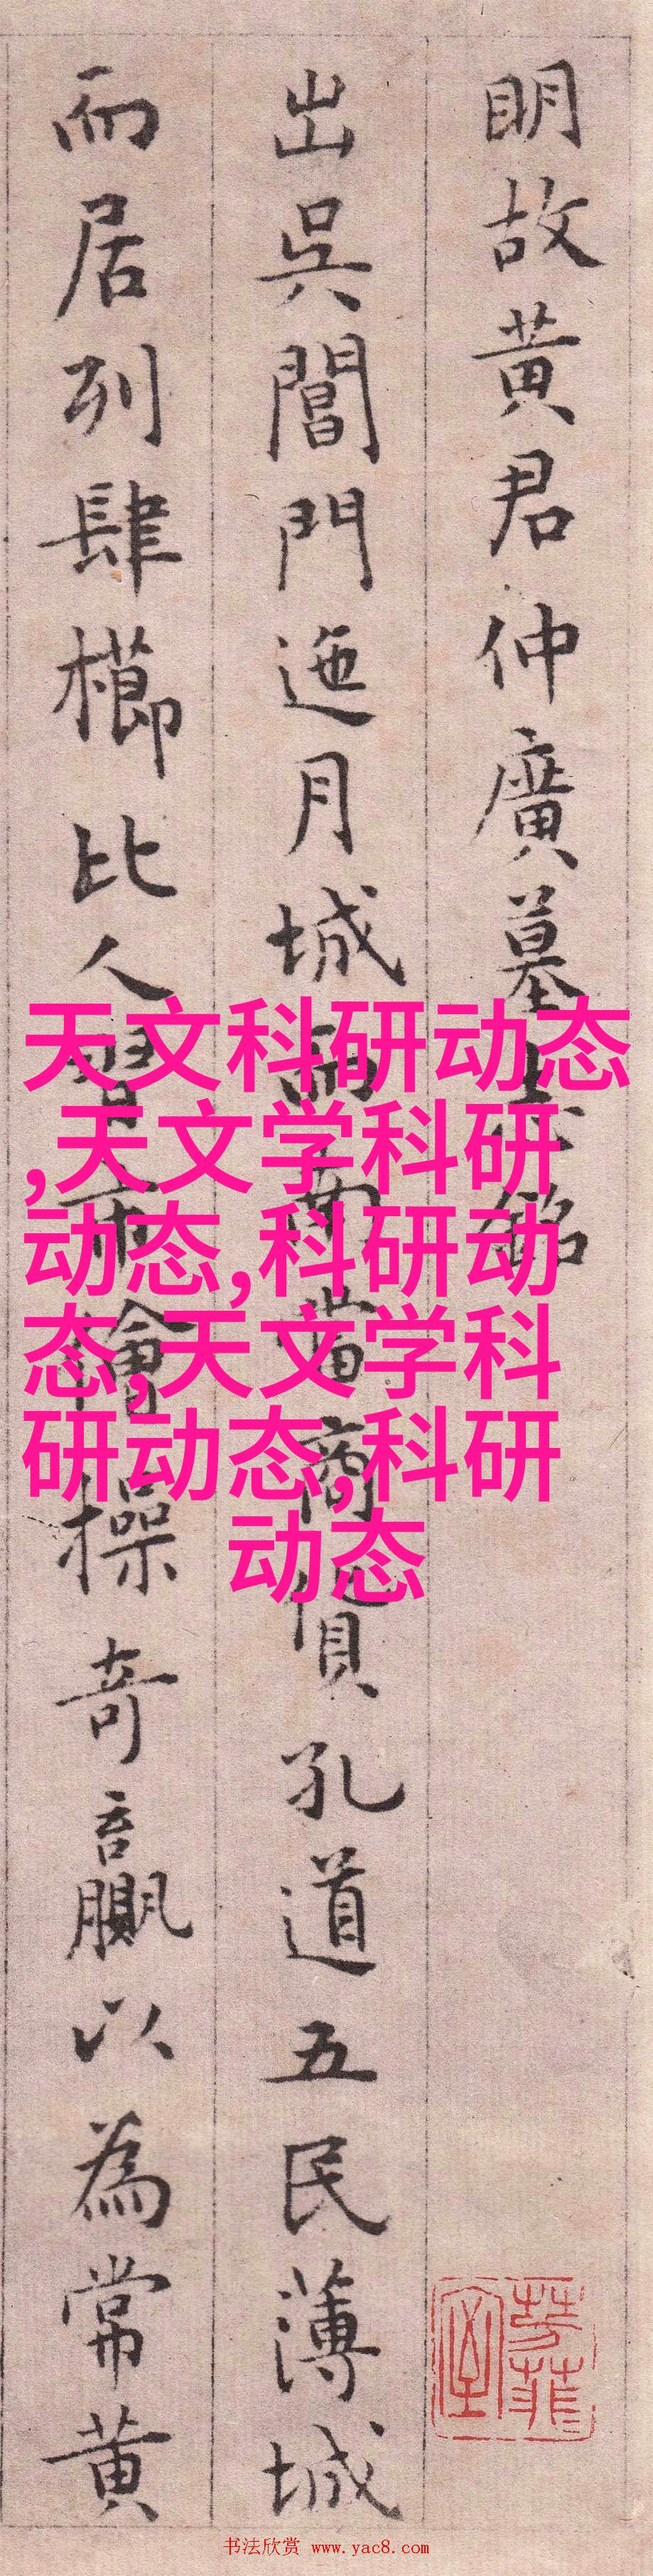 明故黄君仲廣墓志銘
出吳閶門迤月城而南當商賈孔道五民薄城
而居列肆櫛比人習市儈操奇贏以為常黄
天文科研动态
,天文学科研
动态,科研动
态,天文学科
研动态,科研
动态
芳菲
书法欣赏 www.yac8.com